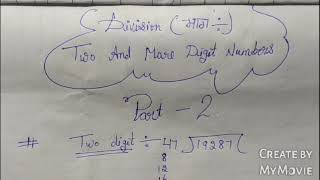 Division (भाग ÷)
Two And More Digit Numbers
Part - 2
# Two digit ÷ 47 ) 19287 (
8
12
16
CREATE BY
MYMOVIE